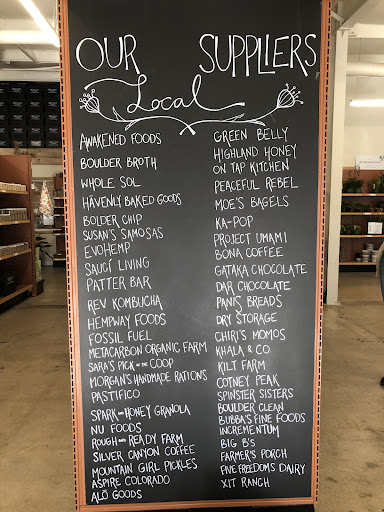 OUR SUPPLIERS
Local
AWAKENED FOODS
BOULDER BROTH
WHOLE SOL
HÄVENLY BAKED GOODS
BOLDER CHIP
SUSAN'S SAMOSAS
EVOHEMP
SAUCÍ LIVING
PATTER BAR
REV KOMBUCHA
HEMPWAY FOODS
FOSSIL FUEL
METACARBON ORGANIC FARM
SARA'S PICK OF THE COOP
MORGAN'S HANDMADE RATIONS
PASTIFICO
SPARK AND HONEY GRANOLA
NU FOODS
ROUGH AND READY FARM
SILVER CANYON COFFEE
MOUNTAIN GIRL PICKLES
ASPIRE COLORADO
ALŌ GOODS
GREEN BELLY
HIGHLAND HONEY
ON TAP KITCHEN
PEACEFUL REBEL
MOE'S BAGELS
KA-POP
PROJECT UMAMI
BONA COFFEE
GATAKA CHOCOLATE
DAR CHOCOLATE
PANIS BREADS
DRY STORAGE
CHIRI'S MOMOS
KHALA & CO.
KILT FARM
COTNEY PEAK
SPINSTER SISTERS
BOULDER CLEAN
BUBBA'S FINE FOODS
INCREMENTUM
BIG B'S
FARMER'S PORCH
FIVE FREEDOMS DAIRY
XIT RANCH